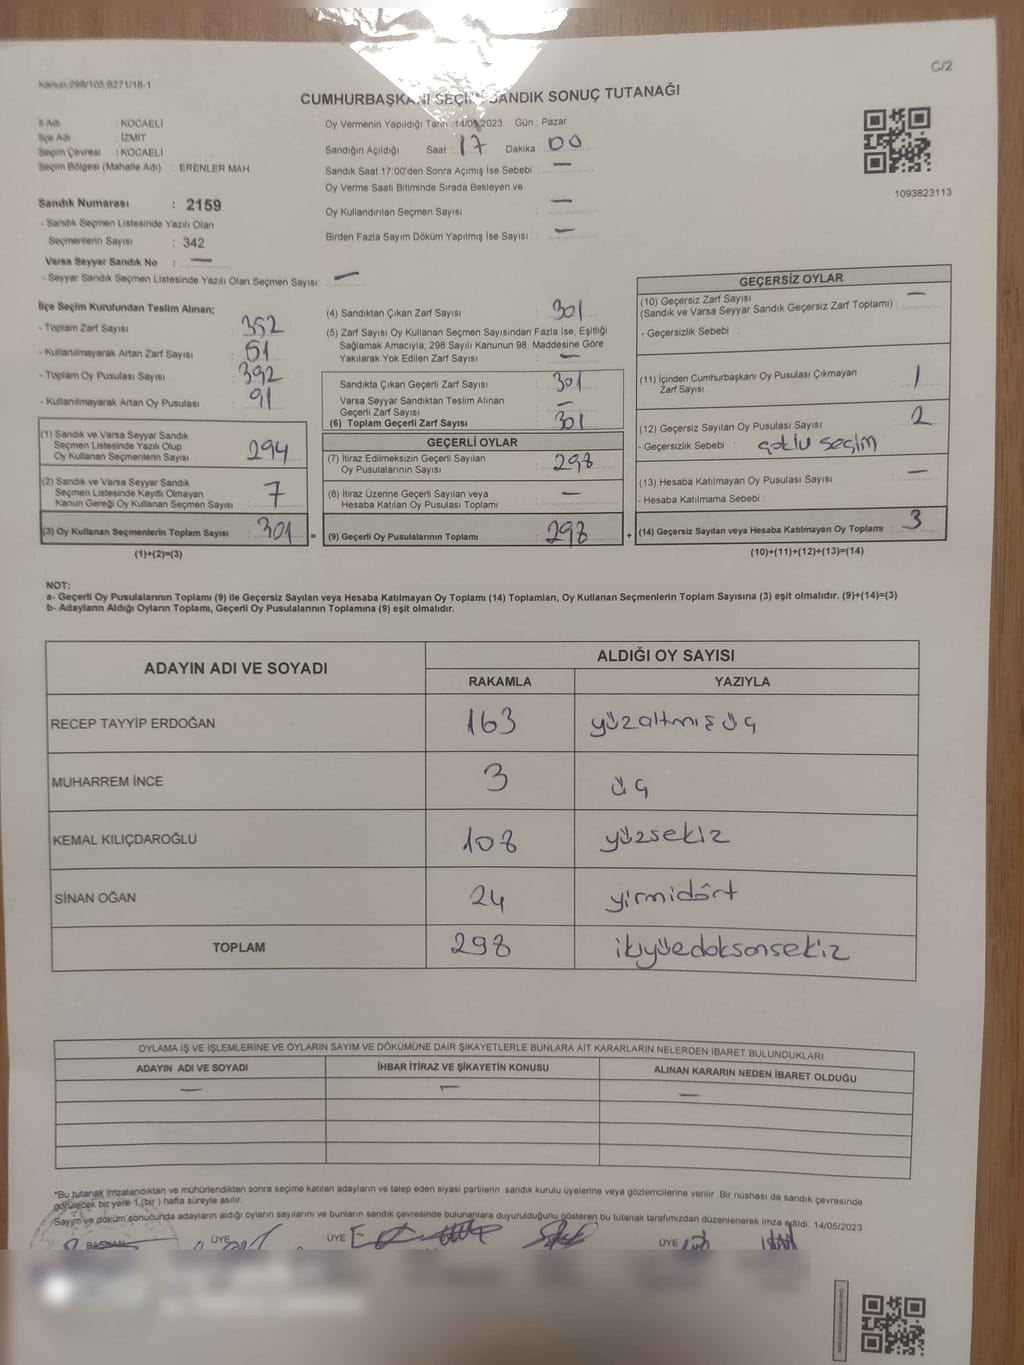 C/2
Kanun:298/105,6271/18-1
CUMHURBAŞKANI SEÇİMİ SANDIK SONUÇ TUTANAĞI
İl Adı : KOCAELİ
İlçe Adı : İZMİT
Seçim Çevresi : KOCAELİ
Seçim Bölgesi (Mahalle Adı) : ERENLER MAH.
Sandık Numarası : 2159
- Sandık Seçmen Listesinde Yazılı Olan
Seçmenlerin Sayısı : 342
Varsa Seyyar Sandık No : —
- Seyyar Sandık Seçmen Listesinde Yazılı Olan Seçmen Sayısı: —
Oy Vermenin Yapıldığı Tarih :14/05/2023 Gün : Pazar
Sandığın Açıldığı Saat : 17 Dakika : 00
Sandık Saat 17:00'den Sonra Açımış İse Sebebi : —
Oy Verme Saati Bitiminde Sırada Bekleyen ve
Oy Kullandırılan Seçmen Sayısı : —
Birden Fazla Sayım Döküm Yapılmış İse Sayısı : —
1093823113
İlçe Seçim Kurulundan Teslim Alınan;
- Toplam Zarf Sayısı : 352
- Kullanılmayarak Artan Zarf Sayısı : 51
- Toplam Oy Pusulası Sayısı : 392
- Kullanılmayarak Artan Oy Pusulası : 91
(1) Sandık ve Varsa Seyyar Sandık
Seçmen Listesinde Yazılı Olup
Oy Kullanan Seçmenlerin Sayısı : 294
(2) Sandık ve Varsa Seyyar Sandık
Seçmen Listesinde Kayıtlı Olmayan
Kanun Gereği Oy Kullanan Seçmen Sayısı : 7
(3) Oy Kullanan Seçmenlerin Toplam Sayısı : 301
(1)+(2)=(3)
(4) Sandıktan Çıkan Zarf Sayısı : 301
(5) Zarf Sayısı Oy Kullanan Seçmen Sayısından Fazla İse, Eşitliği
Sağlamak Amacıyla; 298 Sayılı Kanunun 98. Maddesine Göre
Yakılarak Yok Edilen Zarf Sayısı : —
Sandıkta Çıkan Geçerli Zarf Sayısı : 301
Varsa Seyyar Sandıktan Teslim Alınan
Geçerli Zarf Sayısı : —
(6) Toplam Geçerli Zarf Sayısı : 301
GEÇERLİ OYLAR
(7) İtiraz Edilmeksizin Geçerli Sayılan
Oy Pusulalarının Sayısı : 298
(8) İtiraz Üzerine Geçerli Sayılan veya
Hesaba Katılan Oy Pusulası Toplamı : —
= (9) Geçerli Oy Pusulalarının Toplamı : 298 +
GEÇERSİZ OYLAR
(10) Geçersiz Zarf Sayısı : —
(Sandık ve Varsa Seyyar Sandık Geçersiz Zarf Toplamı) :
- Geçersizlik Sebebi :
(11) İçinden Cumhurbaşkanı Oy Pusulası Çıkmayan
Zarf Sayısı : 1
(12) Geçersiz Sayılan Oy Pusulası Sayısı : 2
- Geçersizlik Sebebi : çoklu seçim
(13) Hesaba Katılmayan Oy Pusulası Sayısı : —
- Hesaba Katılmama Sebebi :
(14) Geçersiz Sayılan veya Hesaba Katılmayan Oy Toplamı : 3
(10)+(11)+(12)+(13)=(14)
NOT:
a- Geçerli Oy Pusulalarının Toplamı (9) ile Geçersiz Sayılan veya Hesaba Katılmayan Oy Toplamı (14) Toplamları, Oy Kullanan Seçmenlerin Toplam Sayısına (3) eşit olmalıdır. (9)+(14)=(3)
b- Adayların Aldığı Oyların Toplamı, Geçerli Oy Pusulalarının Toplamına (9) eşit olmalıdır.
ADAYIN ADI VE SOYADI
ALDIĞI OY SAYISI
RAKAMLA YAZIYLA
RECEP TAYYİP ERDOĞAN 163 yüzaltmış üç
MUHARREM İNCE 3 üç
KEMAL KILIÇDAROĞLU 108 yüzsekiz
SİNAN OĞAN 24 yirmidört
TOPLAM 298 ikiyüzdoksonsekiz
OYLAMA İŞ VE İŞLEMLERİNE VE OYLARIN SAYIM VE DÖKÜMÜNE DAİR ŞİKAYETLERLE BUNLARA AİT KARARLARIN NELERDEN İBARET BULUNDUKLARI
ADAYIN ADI VE SOYADI İHBAR İTİRAZ VE ŞİKAYETİN KONUSU ALINAN KARARIN NEDEN İBARET OLDUĞU
— — —
*Bu tutanak imzalandıktan ve mühürlendikten sonra seçime katılan adayların ve talep eden siyasi partilerin sandık kurulu üyelerine veya gözlemcilerine verilir. Bir nüshası da sandık çevresinde
görülecek bir yere 1 (bir) hafta süreyle asılır.
Sayım ve döküm sonucunda adayların aldığı oyların sayılarını ve bunların sandık çevresinde bulunanlara duyurulduğunu gösteren bu tutanak tarafımızdan düzenlenerek imza edildi. 14/05/2023
BAŞKAN ÜYE ÜYE ÜYE